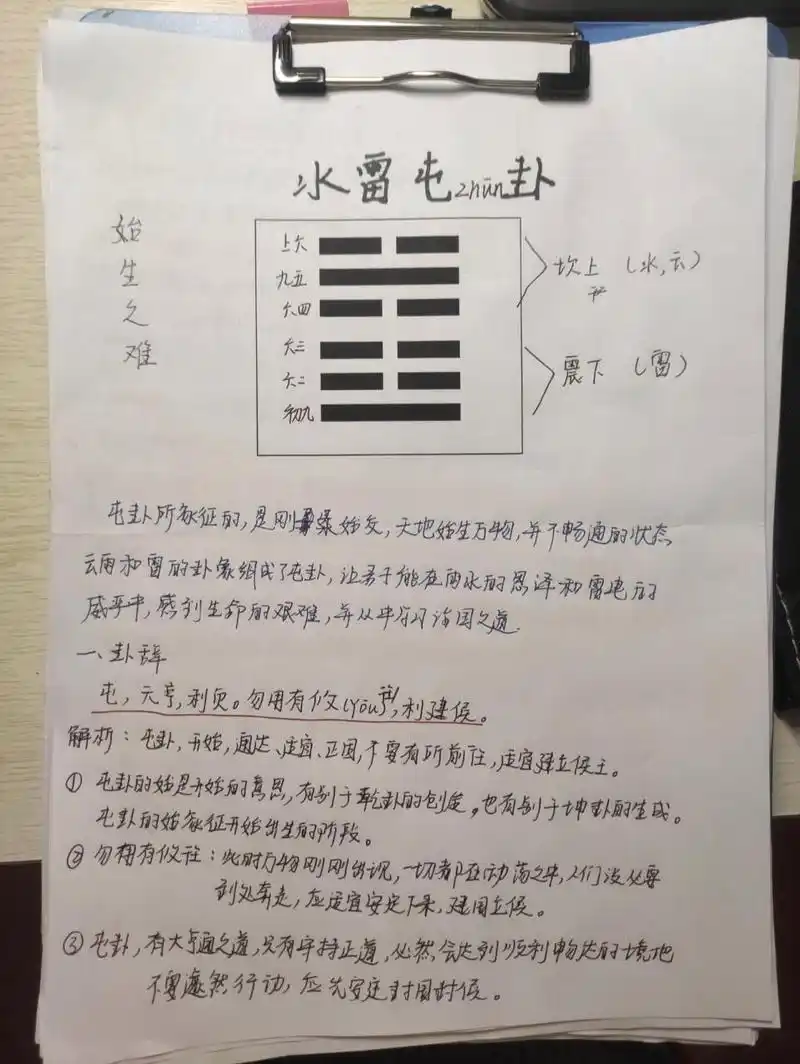 水雷屯zhūn卦
始
生
之
难
上六
九五
六四
六三
六二
初九
坎上 (水,云)
震下 (雷)
屯卦所象征的,是刚柔始交,天地始生万物,并不畅通的状态
云雨和雷的卦象组成了屯卦,让君子能在雨水的恩泽和雷电的
威严中,感到生命的艰难,并从中学习治国之道.
一、卦辞
屯,元亨,利贞。勿用有攸(yōu)往,利建侯。
解析:屯卦,开始,通达、适宜、正固,不要有所前往,适宜建立侯王。
① 屯卦的始是开始的意思,有别于乾卦的创造,也有别于坤卦的生成。
屯卦的始象征开始出生的阶段。
② 勿用有攸往:此时万物刚刚出现,一切都在动荡之中,人们没必要
到处奔走,应适宜安定下来,建国立侯。
③ 屯卦,有大亨通之道,只有守持正道,必然,会达到顺利畅达的境地
不要激然行动,应先安定封国封侯。